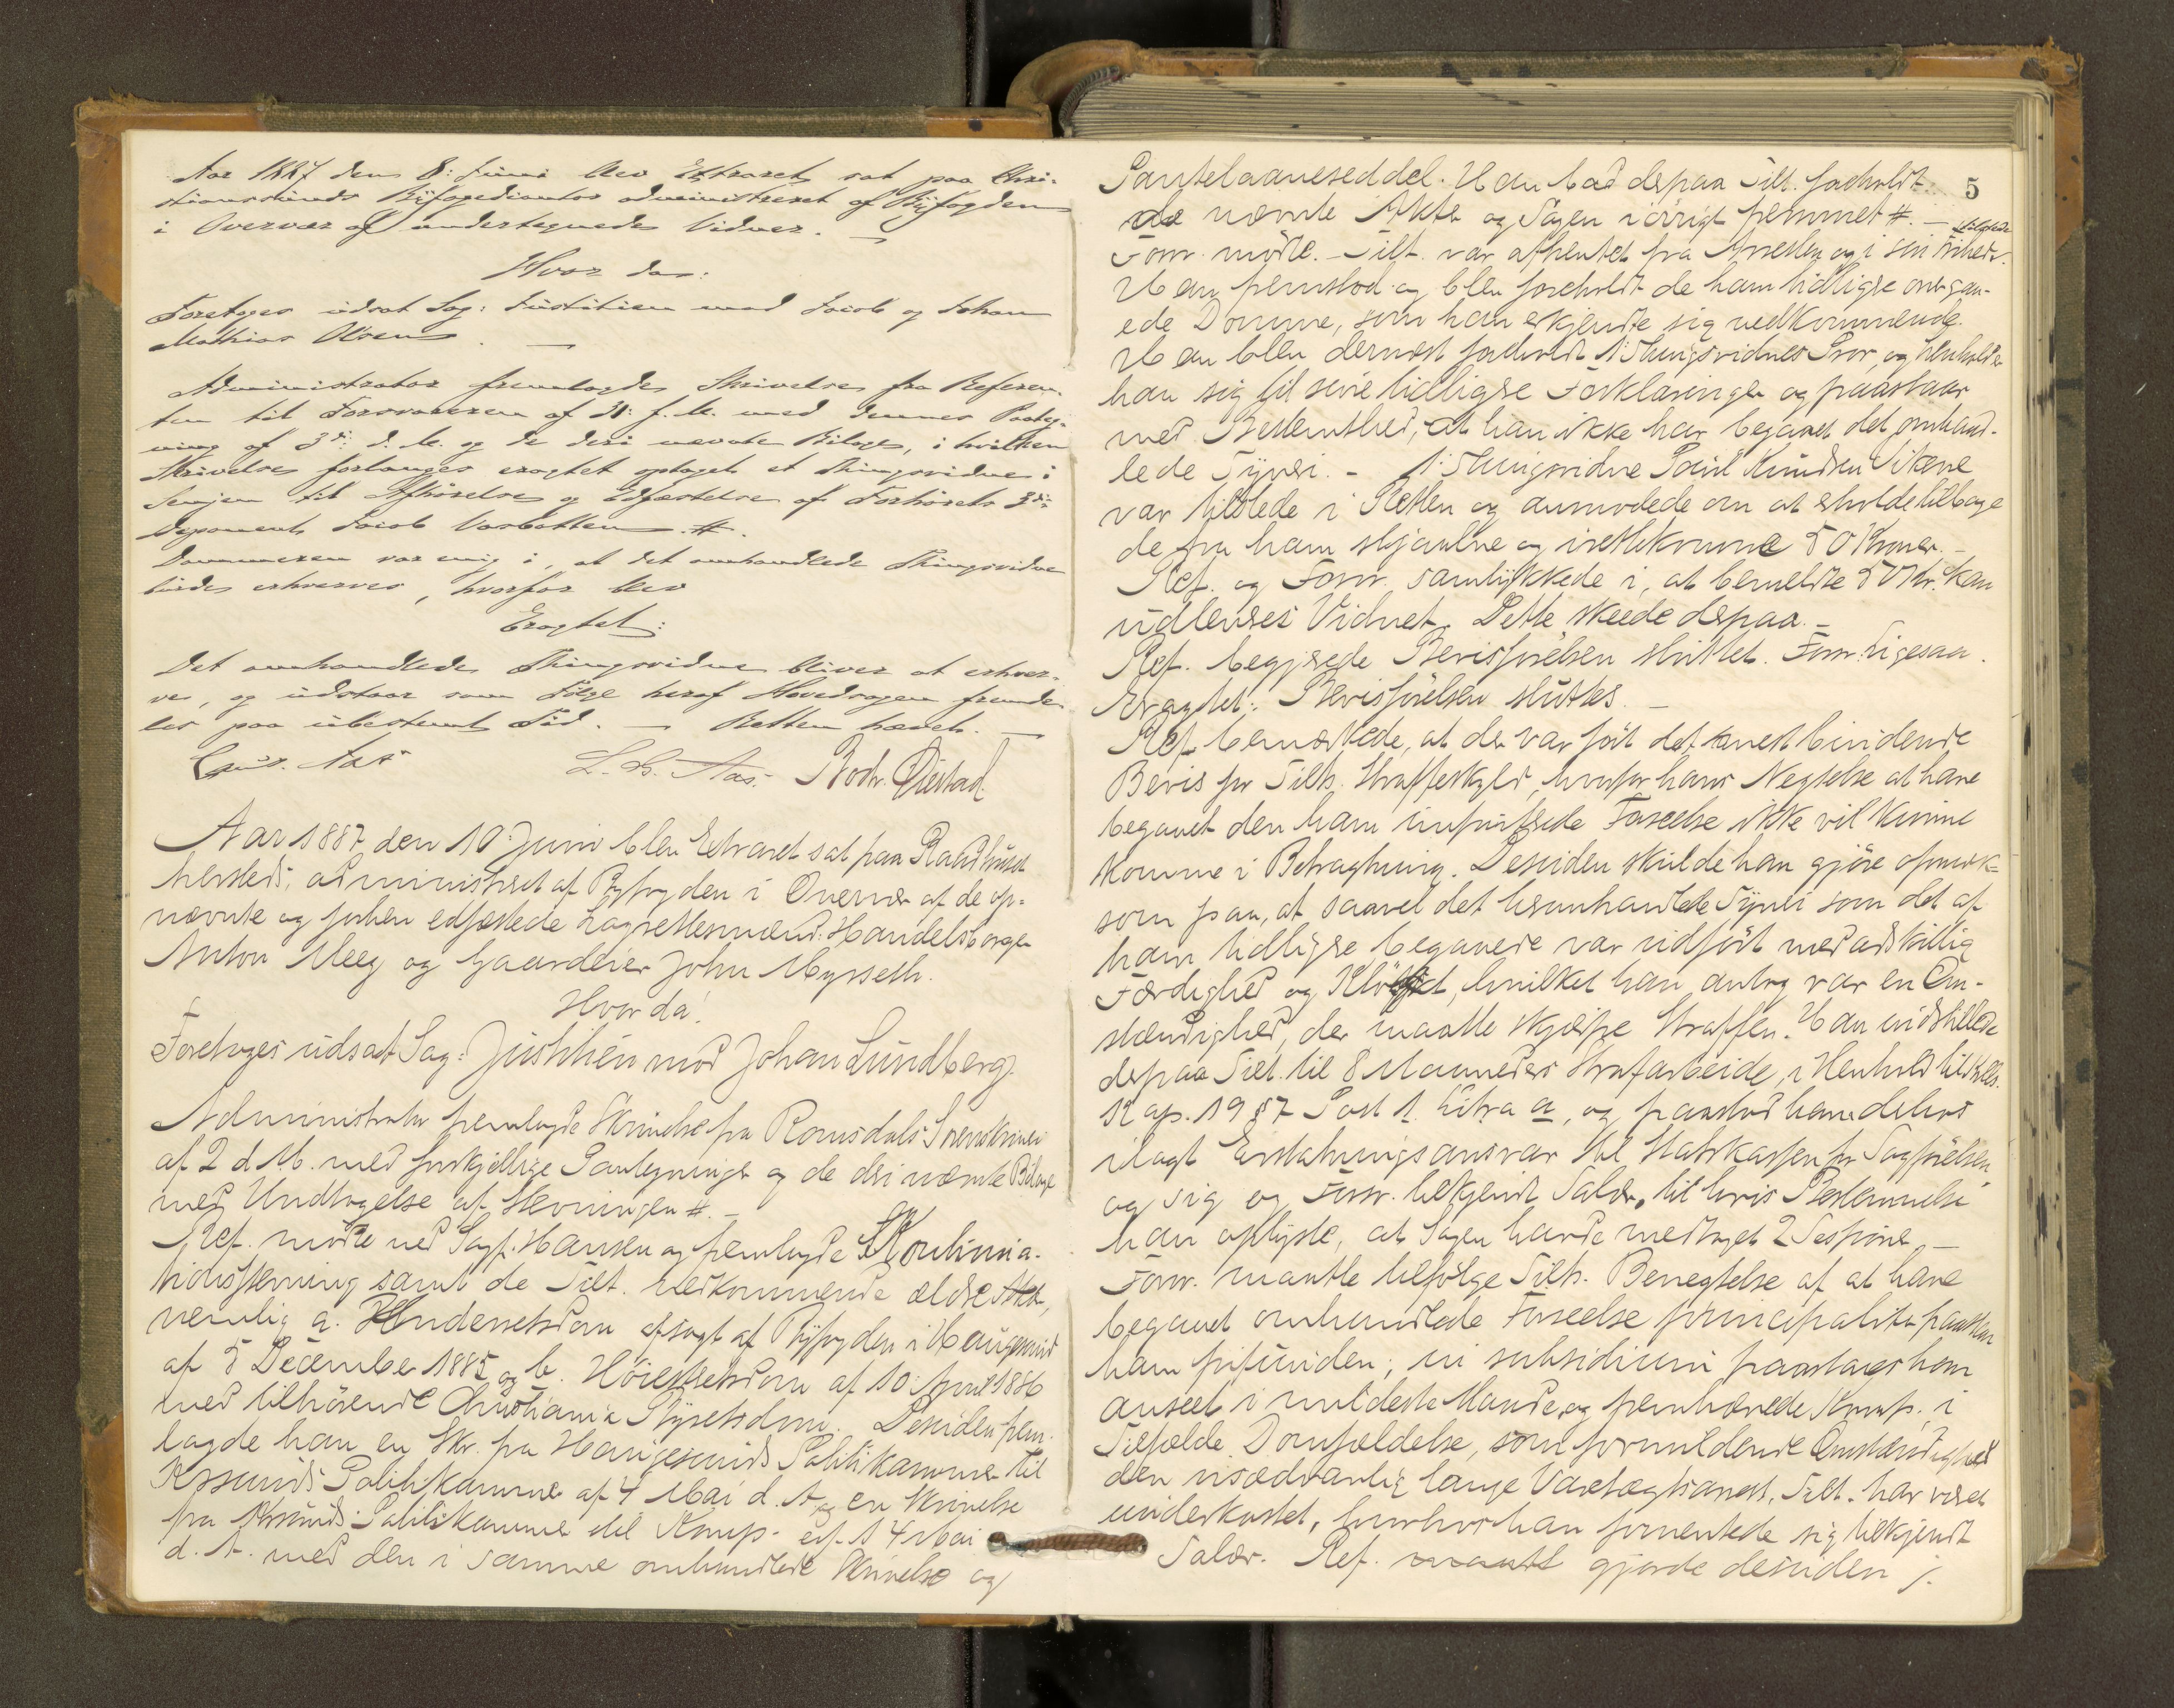 Aar 1887 den 8: Juni blev Extraret sat paa Chri-
stianssunds Byfogedkontor administreret af Byfogden
i Overvær af undertegnede Vidner. —
Hvor da:
Foretoges udsat Sag: Justitien mod Jacob og Johan
Mathias Olsen. —
Administrator fremlagde Skrivelse fra Referen-
ten til Forsvareren af 31: f. M. med dennes Paateg-
ning af 3die d. M. og de deri nævnte Bilage, i hvilken
Skrivelse forlanges eragtet optaget et Thingsvidne i
Senjen til Afhørelse og Edfæstelse af Forhørets 3die
Deponent Jacob #.
Dommeren var enig i, at det omhandlede Thingsvidne
burde erhverves, hvorfor blev
Eragtet:
Det omhandlede Thingsvidne bliver at erhver-
ves, og udstaar som Følge heraf Hovedsagen fremde-
les paa ubestemt Tid. — Retten hævet. —
Aas L. B. Aas.
Aar 1887 den 10: Juni blev Extraret sat paa Raadhuset
hersteds, administreret af Byfogden i Overvær af de op-
nævnte og forhen edfæstede Lagrettesmænd: Handelsborger
Anton Meeg og Gaardeier John Myrseth.
Hvor da!
Foretoges udsat Sag: Justitien mod Johan Lundberg.
Administrator fremlagde Skrivelse fra Romsdals Sorenskriveri
af 2 d M. med forskjellige Paategninger og de deri nævnte Bilage
med Undtagelse af Stevningen #. —
Ref. mødte ved Sagf. Hansen og fremlagde Kontinua-
tionsstevning samt de Tilt. vedkommende ældre Akter,
nemlig a. Underretsdom afsagt af Byfogden i Haugesund
af 5 December 1885 og b. Høiesteretsdom af 10 April 1886
med tilhørende Christiania Byretsdom. Desuden frem-
lagde han en Skr. fra Haugesunds Politikammer til
Krsunds Politikammer af 4 Mai d. A. og en Skrivelse
fra Krsunds Politikammer til Komp. af 14 Mai
d. A. med den i samme omhandlede Skrivelse og
5
Pantelaaneseddel. Han bad derpaa Tilt. foreholdt
de nævnte Akter og Sagen iøvrigt fremmet #. —
Forsv. mødte. — Tilt. var afhentet fra Arresten og i sin Frihed tilstede.
Han fremstod og blev foreholdt de ham tidligere overgaa-
ede Domme, som han erkjendte sig vedkommende.
Han blev dernæst foreholdt 1: Thingsvidnes Prov, og henholder
han sig til sine tidligere Forklaringer og paastaar
med Bestemthed, at han ikke har begaaet det omhand-
lede Tyveri. — 1: Thingsvidne Knudsen
var tilstede i Retten og anmodede om at erholde tilbage
de fra ham stjaalne og iretlekomne 50 Kroner. —
Ref. og Forsv. samtykkede i, at bemeldte 50 Kr. kan
udleveres Vidnet. Dette skeede derpaa. —
Ref. begjærede Bevisførelsen sluttet. Forsv. ligesaa.
Eragtet: Bevisførelsen sluttes. —
Ref. bemærkede, at der var ført det mest bindende
Bevis for Tilts. Straffeskyld, hvorfor hans Negtelse at have
begaaet den ham imputerede Forseelse ikke vil kunne
komme i Betragtning. Desuden skulde han gjøre opmærk-
som paa, at saavel det heromhandlede Tyveri som det af
ham tidligere begaaede var udført med adskillig
Færdighed og Kløgt, hvilket han antog var en Om-
stændighed, der maatte skjærpe Straffen. Han indstillede
derpaa Tilt. til 8 Maaneders Strafarbeide, i Henhold til
Kap. 19 § 7 Post 1 Litra a, og paastod han derhos
ilagt Erstatningsansvar til Statskassen for Sagførelsen
og sig og Forsv. tilkjendt Salær, til hvis Bestemmelse
han oplyste, at Sagen havde medtaget 2 Sessioner. —
Forsv. maatte ifølge Tilts. Benegtelse af at have
begaaet omhandlede Forseelse principaliter paastaa
ham frifunden; in subsidium paastaaes ham
anseet i mildeste Maade, og fremhævede Komp. i
Tilfælde Domfældelse, som formildende Omstændighed
den usædvanlig lange Varetægtsarrest, Tilt. har været
underkastet, hvorhos han forventede sig tilkjendt
Salær. Ref. gjorde desuden